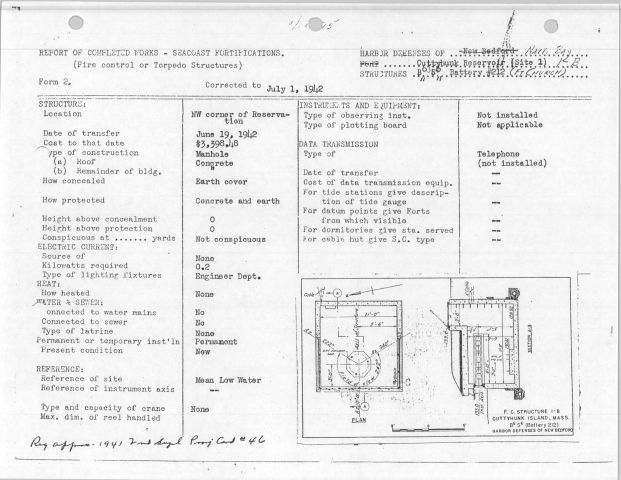 REPORT OF COMPLETED WORKS - SEACOAST FORTIFICATIONS.
(Fire control or Torpedo Structures)
Form 2.
Corrected to July 1, 1942
HARBOR DEFENSES OF New Bedford
FORT Cuttyhunk Reservoir (Site 1)
STRUCTURES Battery #212 (Ft Church)
STRUCTURE:
Location NW corner of Reservation
Date of transfer June 19, 1942
Cost to that date $3,398.48
Type of construction Manhole
(a) Roof Concrete
(b) Remainder of bldg. "
How concealed Earth cover
How protected Concrete and earth
Height above concealment 0
Height above protection 0
Conspicuous at ....... yards Not conspicuous
ELECTRIC CURRENT:
Source of None
Kilowatts required 0.2
Type of lighting fixtures Engineer Dept.
HEAT:
How heated None
WATER & SEWER:
connected to water mains No
Connected to sewer No
Type of latrine None
Permanent or temporary inst'ln Permanent
Present condition New
REFERENCE:
Reference of site Mean Low Water
Reference of instrument axis --
Type and capacity of crane None
Max. dim. of reel handled
INSTRUMENTS AND EQUIPMENT:
Type of observing inst. Not installed
Type of plotting board Not applicable
DATA TRANSMISSION
Type of Telephone
(not installed)
Date of transfer --
Cost of data transmission equip. --
For tide stations give description of tide gauge --
For datum points give Forts
from which visible --
For dormitories give sta. served --
For cable hut give S.C. type --
PLAN
SECTION A-A
F. C. STRUCTURE 1-B
CUTTYHUNK ISLAND, MASS.
B⁶ S⁶ (Battery 212)
HARBOR DEFENSES OF NEW BEDFORD
Req approx. 1941 2nd Supl Proj Card #46